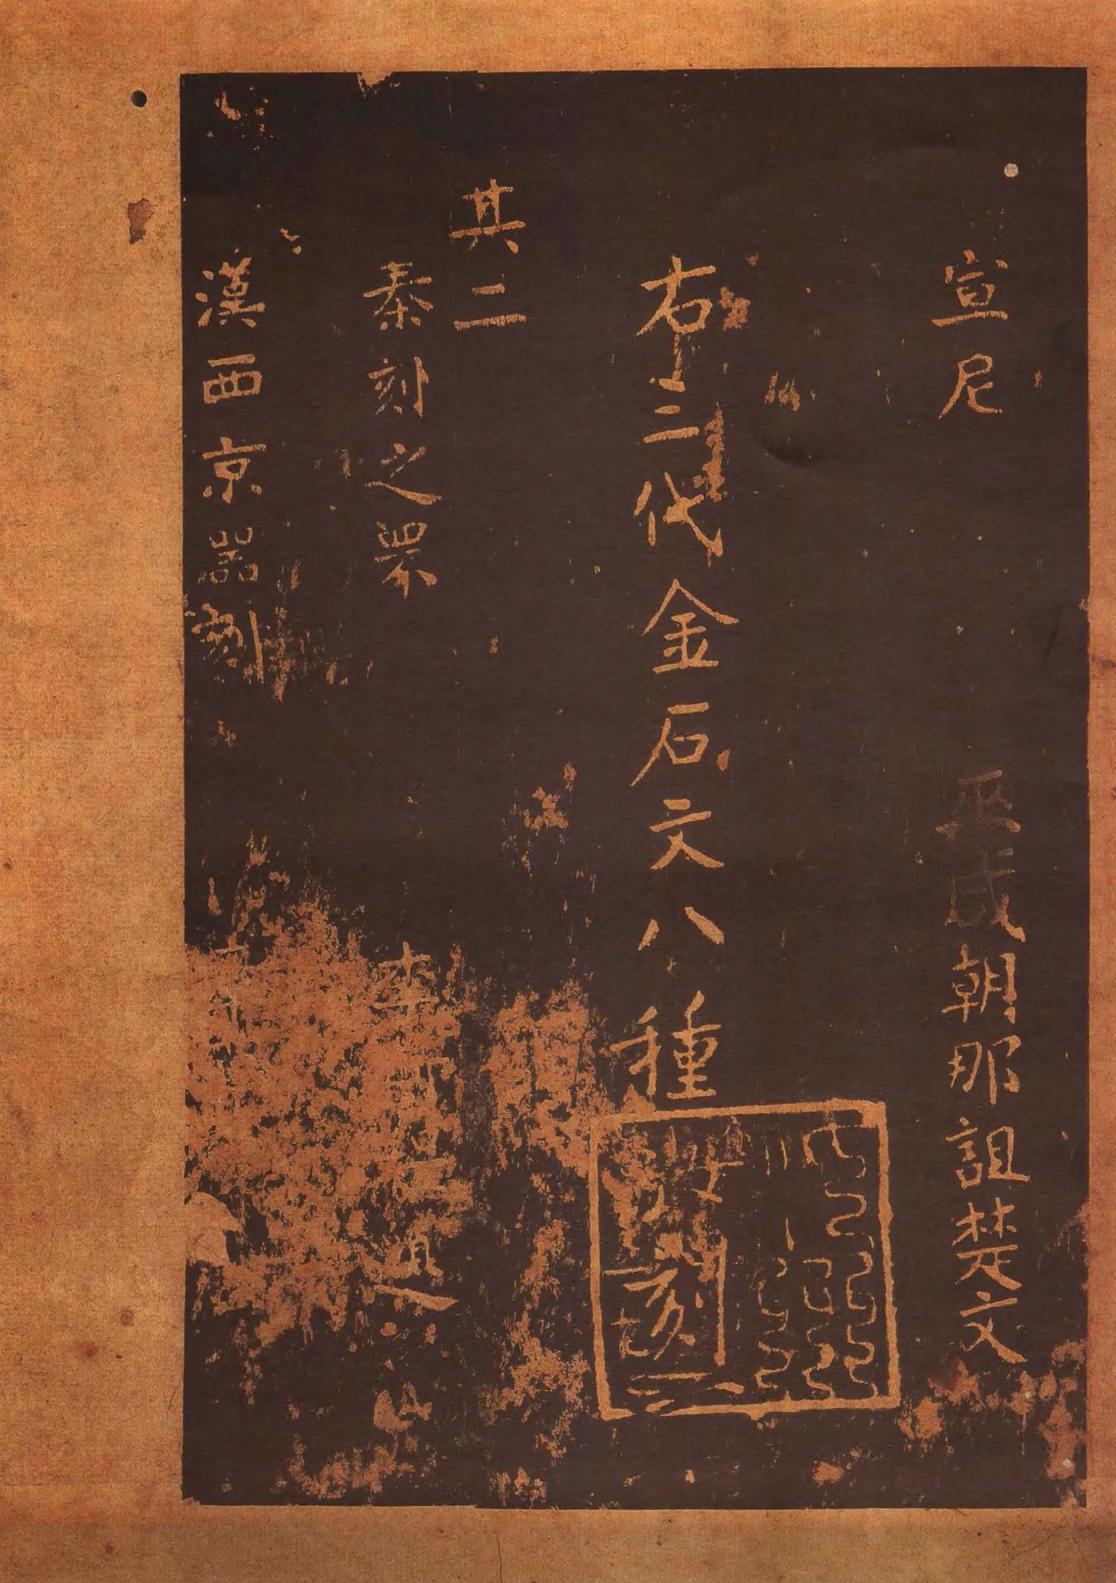 宣尼　巫咸朝那詛楚文
右三代金石文八種
其二
秦刻之罘　李
漢西京器刻